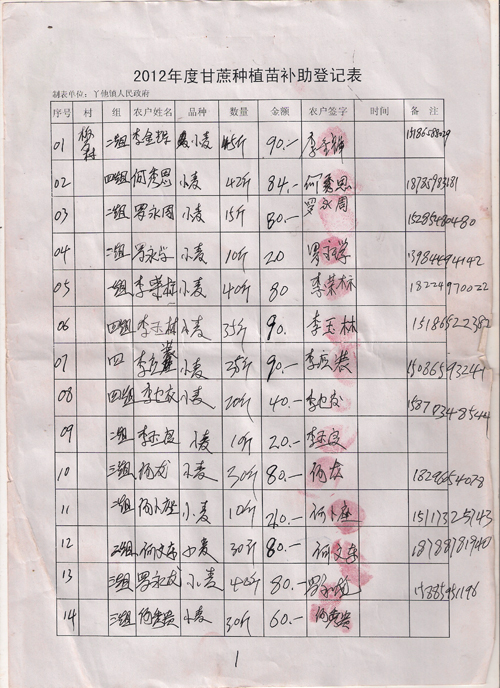 2012年度甘蔗种植苗补助登记表
制表单位：丫他镇人民政府
序号 村 组 农户姓名 品种 数量 金额 农户签字 时间 备 注
01 二组 李金 小麦 45斤 90.- 李金
02 四组 何秀恩 小麦 42斤 84.- 何秀恩 18785983181
03 二组 罗永周 小麦 15斤 30.- 罗永周 15285480480
04 二组 罗永学 小麦 10斤 20 罗永学 13984494142
05 一组 李荣标 小麦 40斤 80 李荣标 18224970022
06 四组 李玉林 小麦 35斤 90. 李玉林 15186522382
07 四 李 小麦 35斤 90.- 李 15086593241
08 四组 李 小麦 20斤 40.- 李 15870348544
09 二组 李 小麦 10斤 20.- 李
10 三组 何龙 小麦 30斤 80.- 何龙 18296654078
11 二组 何卜座 小麦 10斤 20.- 何卜座 15117325743
12 二组 何文东 小麦 30斤 80.- 何文东 18788781940
13 三组 罗永 小麦 40斤 80.- 罗永 15385951196
14 三组 何 贵 小麦 30斤 60.- 何 贵
1